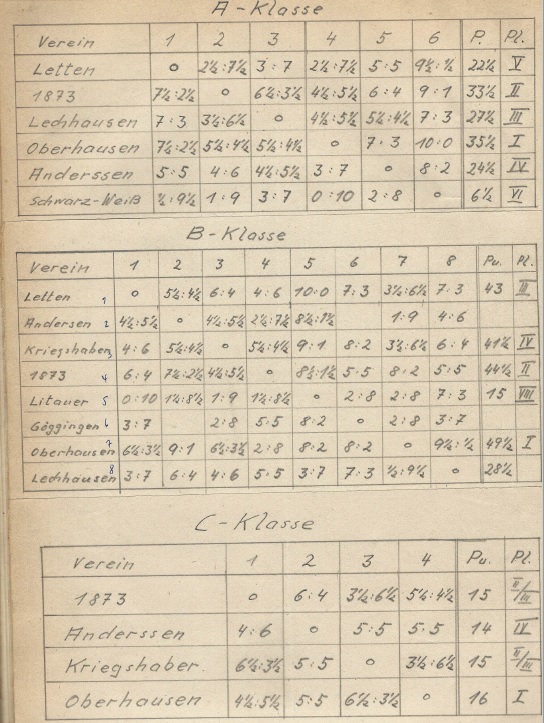 A-Klasse
Verein 1 2 3 4 5 6 P. Pl.
Letten o 2½:7½ 3:7 2½:7½ 5:5 9½:½ 22½ V
1873 7½:2½ o 6½:3½ 4½:5½ 6:4 9:1 33½ II
Lechhausen 7:3 3½:6½ o 4½:5½ 5½:4½ 7:3 27½ III
Oberhausen 7½:2½ 5½:4½ 5½:4½ o 7:3 10:0 35½ I
Anderssen 5:5 4:6 4½:5½ 3:7 o 8:2 24½ IV
Schwarz-Weiß ½:9½ 1:9 3:7 0:10 2:8 o 6½ VI
B-Klasse
Verein 1 2 3 4 5 6 7 8 Pu. Pl.
Letten 1 o 5½:4½ 6:4 4:6 10:0 7:3 3½:6½ 7:3 43 III
Andersen 2 4½:5½ o 4½:5½ 2½:7½ 8½:1½ 1:9 4:6
Kriegshaber 3 4:6 5½:4½ o 5½:4½ 9:1 8:2 3½:6½ 6:4 41½ IV
1873 4 6:4 7½:2½ 4½:5½ o 8½:1½ 5:5 8:2 5:5 44½ II
Litauer 5 0:10 1½:8½ 1:9 1½:8½ o 2:8 2:8 7:3 15 VIII
Göggingen 6 3:7 2:8 5:5 8:2 o 2:8 3:7
Oberhausen 7 6½:3½ 9:1 6½:3½ 2:8 8:2 8:2 o 9½:½ 49½ I
Lechhausen 8 3:7 6:4 4:6 5:5 3:7 7:3 ½:9½ o 28½
C-Klasse
Verein 1 2 3 4 Pu. Pl.
1873 o 6:4 3½:6½ 5½:4½ 15 II/III
Anderssen 4:6 o 5:5 5:5 14 IV
Kriegshaber. 6½:3½ 5:5 o 3½:6½ 15 II/III
Oberhausen 4½:5½ 5:5 6½:3½ o 16 I